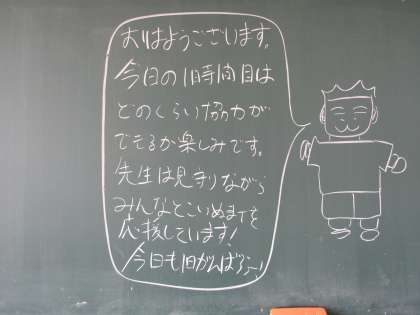 おはようございます。
今日の1時間目は
どのくらい協力が
できるか楽しみです。
先生は見守りながら
みんなとこいぬままを
応援しています!
今日も1日がんばろう!